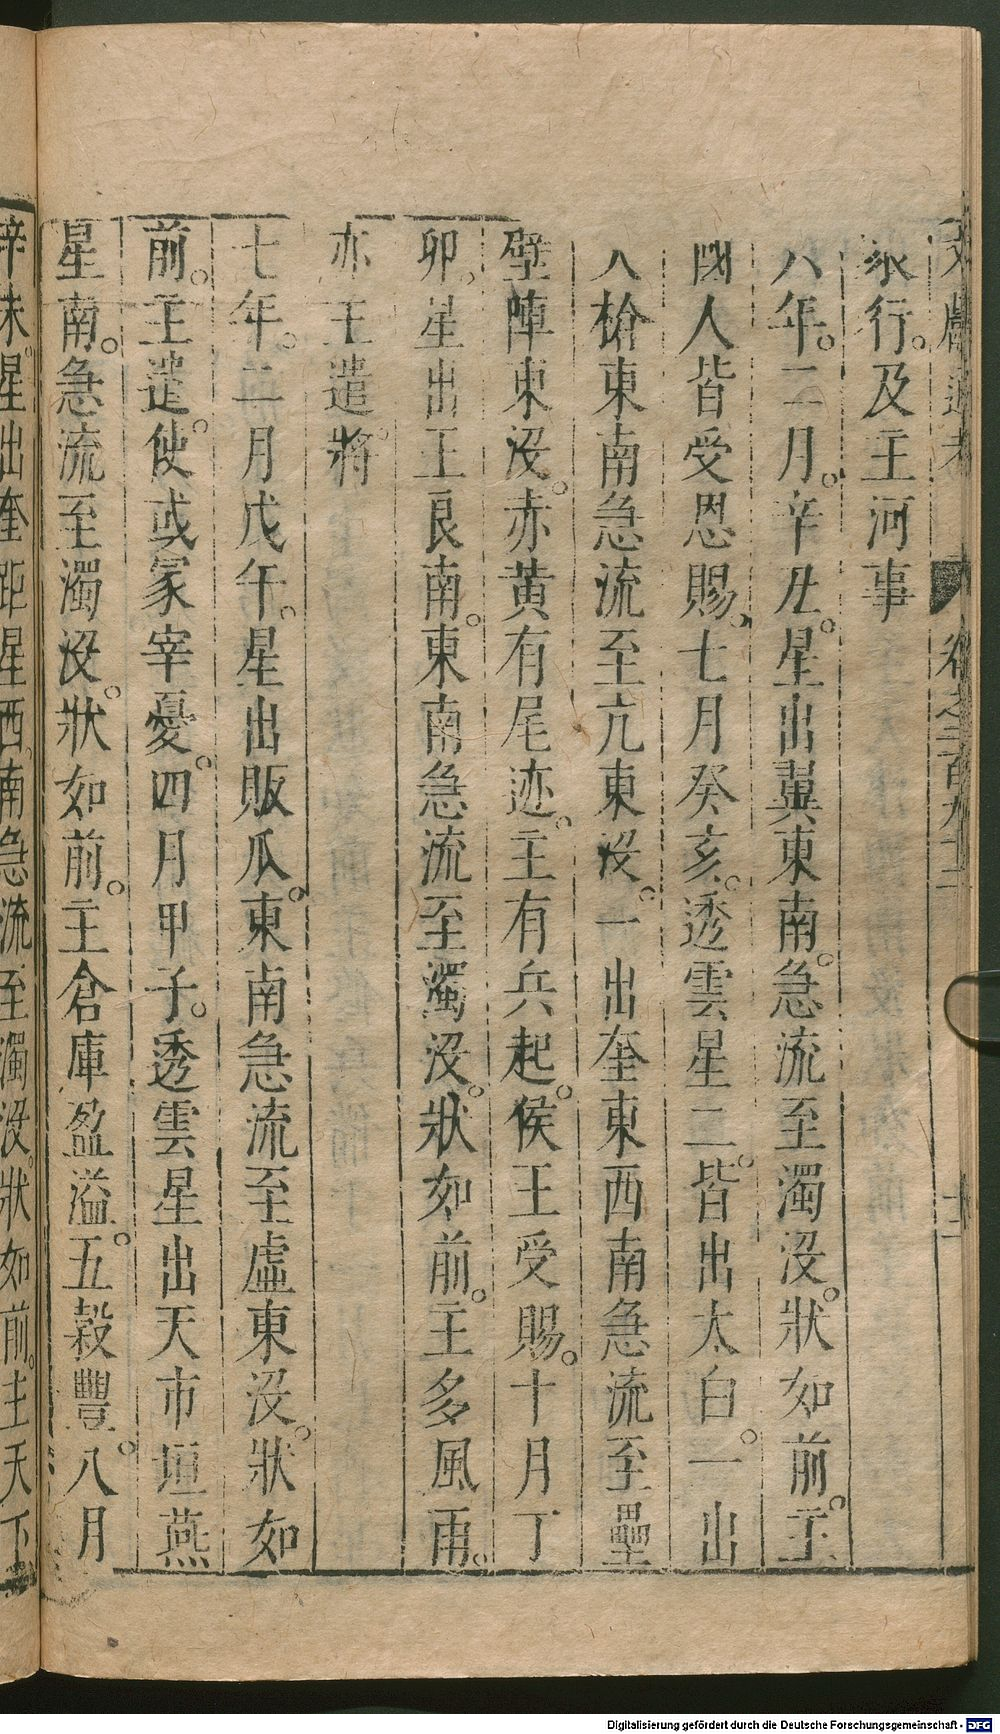 文獻通考 卷之二百九十二 十二
衆行。及主河事
六年。二月。辛丑。星出翼東南。急流至濁没。狀如前。主
國人皆受恩賜。七月癸亥。透雲星二。皆出太白。一出
天槍東南急流至亢東没。一出奎東西南急流至壘
壁陣東没。赤黃有尾迹。主有兵起。侯王受賜。十月丁
卯。星出王良南。東南急流至濁没。狀如前。主多風雨。
亦主遣將
七年。二月戊午。星出販瓜。東南急流至虛東没。狀如
前。主遣。使或冢宰憂。四月甲子。透雲星出天市垣燕
星南。急流至濁没。狀如前。主倉庫盈溢。五穀豐。八月
辛未。星出奎距星西。南急流至濁没。狀如前。主天下
Digitalisierung gefördert durch die Deutsche Forschungsgemeinschaft - DFG